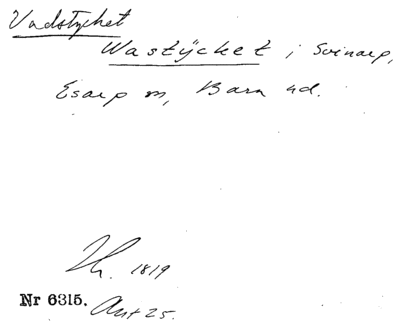 Vadstycket
Wastÿcket i Svinarp,
Esarp sn, Bara hd.
Lh. 1819
Nr 6315. Akt 25.